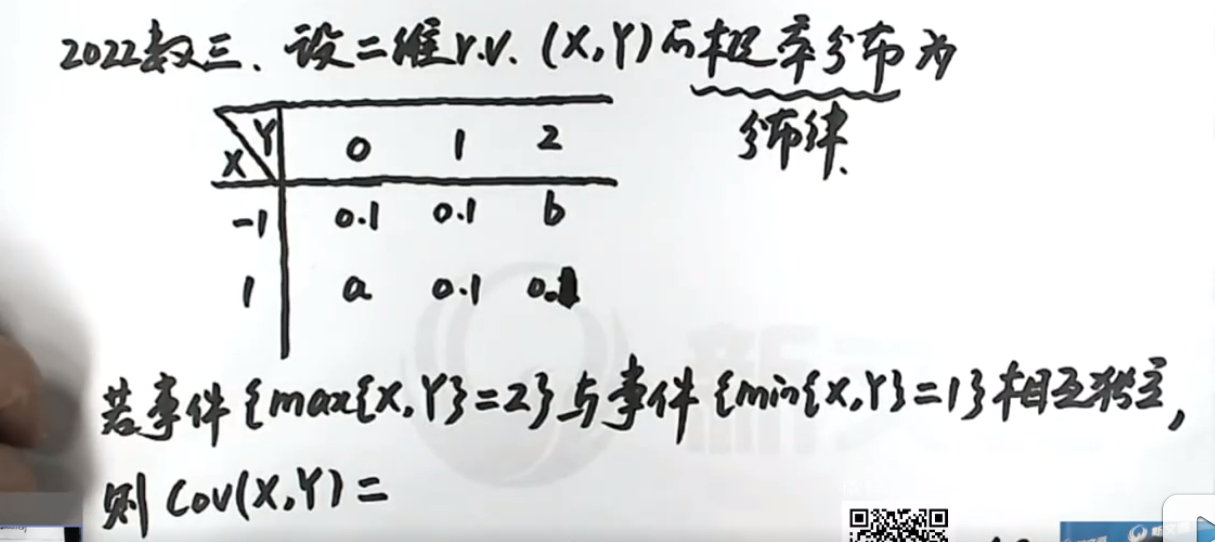 2022数三、设二维r.v.(X,Y)的概率分布为
分布律.
X Y 0 1 2
-1 0.1 0.1 b
1 a 0.1 0.1
若事件{max{X,Y}=2}与事件{min{X,Y}=1}相互独立,
则Cov(X,Y)=